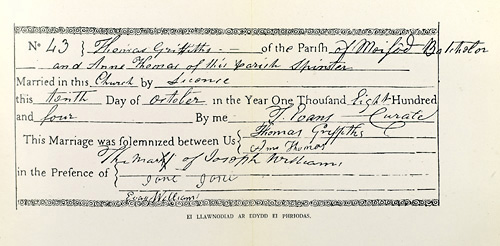 No 43 Thomas Griffiths — of the Parish of Meifod Batchelor
and Anne Thomas of this Parish Spinster
Married in this Church by Licence
this tenth Day of October in the Year One Thousand Eight Hundred
and four By me T. Evans — Curate
This Marriage was solemnized between Us Thomas Griffiths
Ann Thomas
The Mark X of Joseph William
in the Presence of Jane Jone
Evan William
EI LLAWNODIAD AR EDYDD EI PHRIODAS.